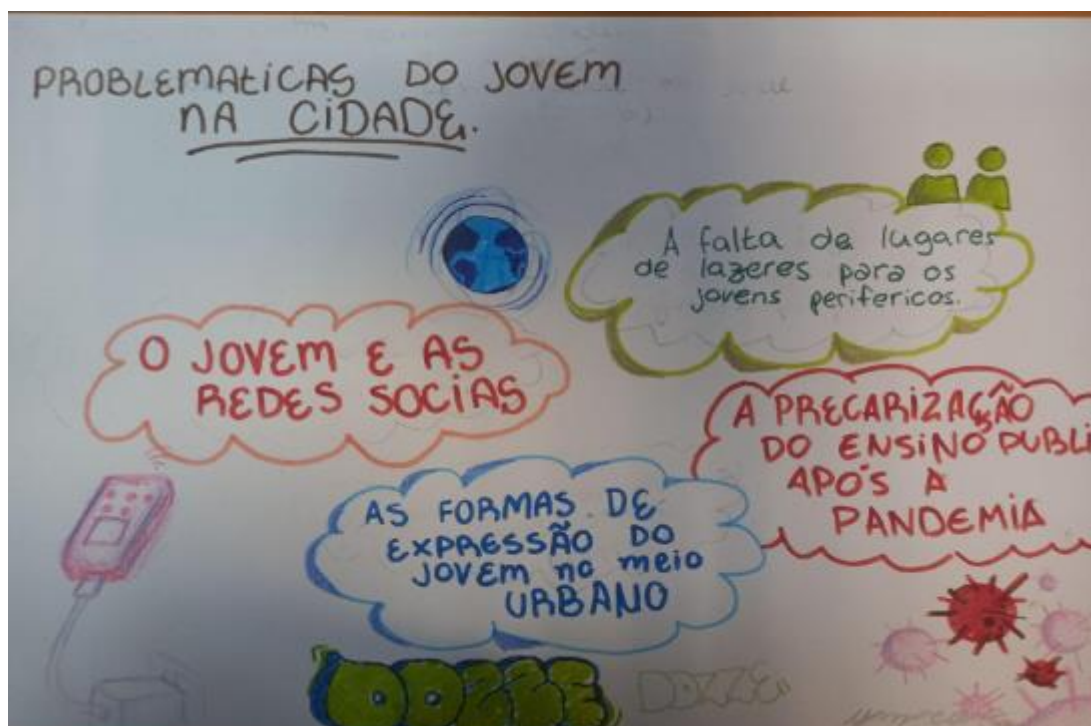 PROBLEMATICAS DO JOVEM
NA CIDADE.
A falta de lugares
de lazeres para os
jovens perifericos.
O JOVEM E AS
REDES SOCIAS
A PRECARIZAÇÃO
DO ENSINO PUBLI
APÓS A
PANDEMIA
AS FORMAS DE
EXPRESSÃO DO
JOVEM no meio
URBANO